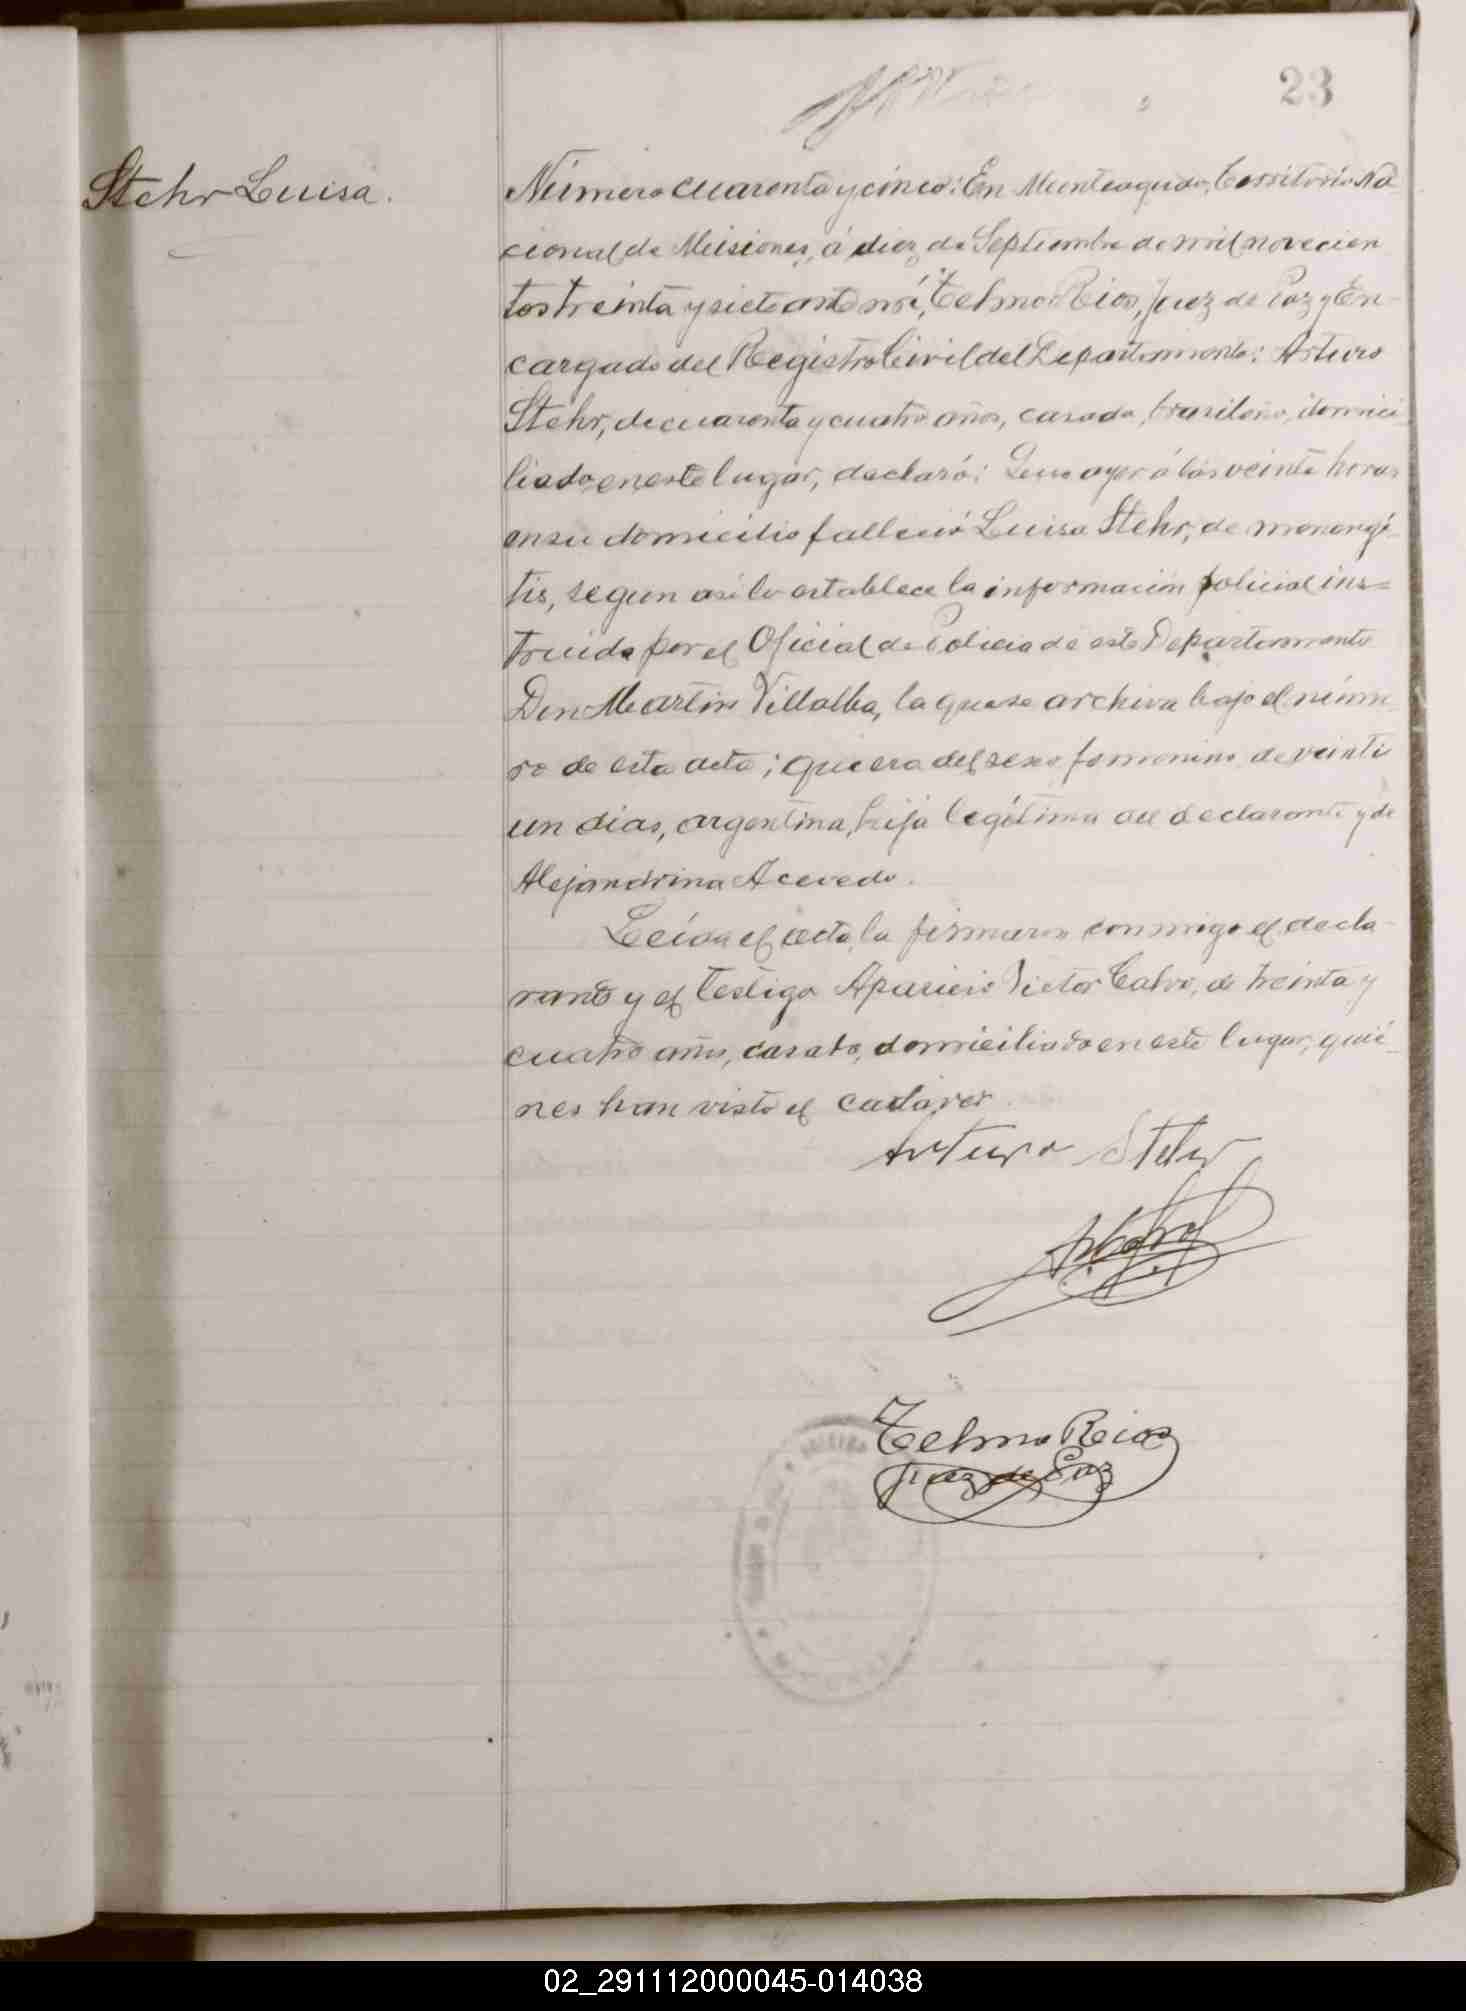 23
Stehr Luisa.
Número cuarenta y cinco: En Monteagudo, Territorio Na-
cional de Misiones, á diez de Septiembre de mil novecien
tos treinta y siete ante mí, Telmo Rios, Juez de Paz y En-
cargado del Registro Civil del Departamento: Arturo
Stehr, de cuarenta y cuatro años, casado, brasileño, domici-
liado en este lugar, declaró: Que ayer á las veinte horas
en su domicilio falleció Luisa Stehr, de
tis, segun asi lo establece la información policial ins=
truida por el Oficial de Policia de este Departamento
Don Martin Villalba, la que se archiva bajo el núme
ro de esta acta; que era del sexo femenino de veinti
un dias, argentina, hija legítima del declarante y de
Alejandrina Acevedo.
Leída el acta, la firmaron conmigo el decla-
rante y el testigo Aparicio Victor Calvo, de treinta y
cuatro años, casado, domiciliado en este lugar, quié-
nes han visto el cadáver.
Arturo Stehr
Telmo Rios
Juez de Paz
02_291112000045-014038